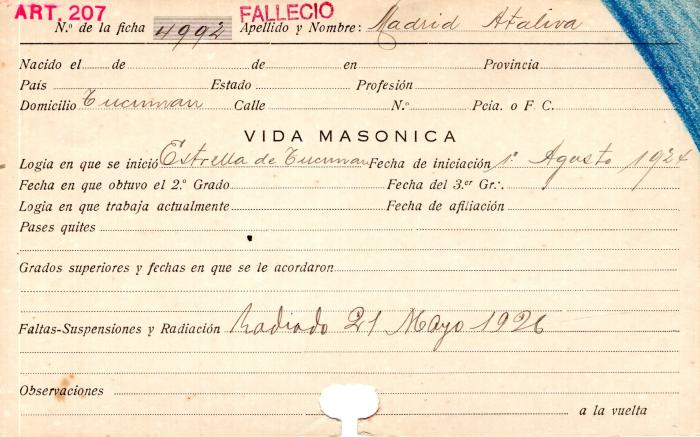 ART. 207 FALLECIO
N.º de la ficha 4992 Apellido y Nombre: Madrid Ataliva
Nacido el de de en Provincia
País Estado Profesión
Domicilio Tucuman Calle N.º Pcia. o F. C.
VIDA MASONICA
Logia en que se inició Estrella de Tucuman Fecha de iniciación 1º Agosto 1924
Fecha en que obtuvo el 2.º Grado Fecha del 3.er Gr.·.
Logia en que trabaja actualmente Fecha de afiliación
Pases quites
Grados superiores y fechas en que se le acordaron
Faltas-Suspensiones y Radiación Radiado 21 Mayo 1926
Observaciones
a la vuelta